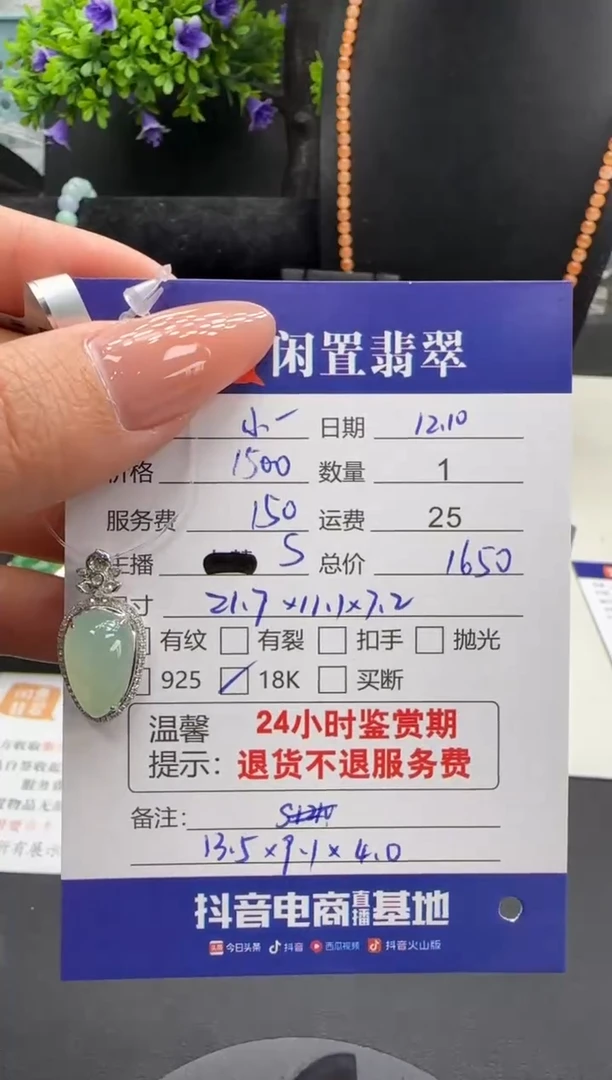 闲置翡翠
小一 日期 12.10
价格 1500 数量 1
服务费 150 运费 25
主播 S 总价 1650
寸 21.7×11.1×7.2
有纹 有裂 扣手 抛光
925 18K 买断
温馨提示: 24小时鉴赏期
退货不退服务费
备注:
13.5×9.1×4.0
抖音电商直播基地
头条 今日头条 抖音 西瓜视频 抖音火山版